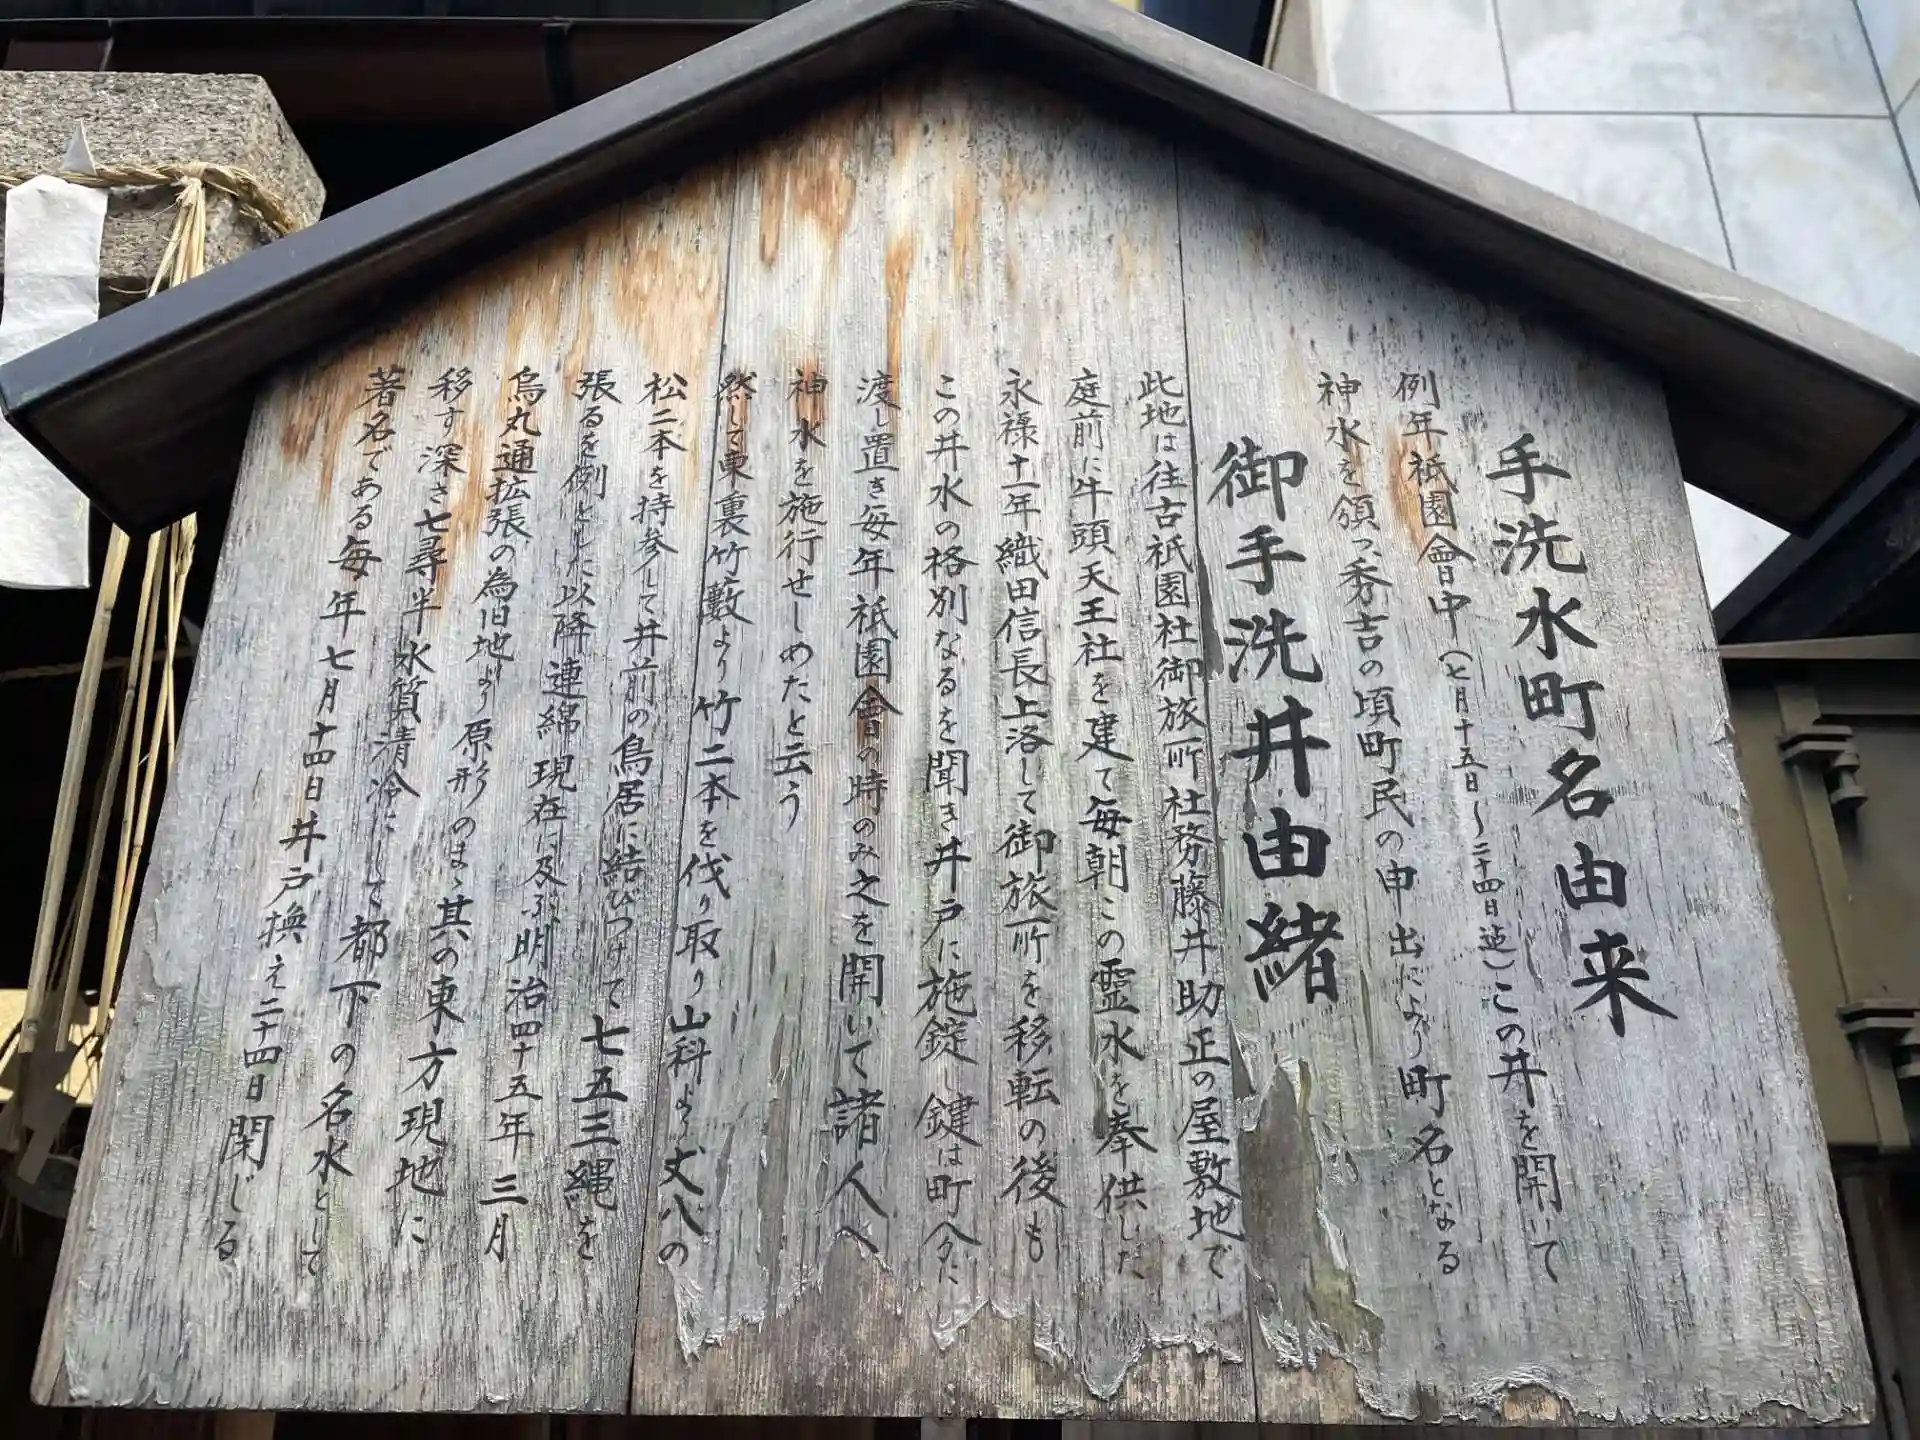 手洗水町名由来
例年祇園會中(七月十五日～二十四日迠)この井を開いて
神水を領つ、秀吉の頃町民の申出により町名となる
御手洗井由緒
此地は往古祇園社御旅所社務藤井助正の屋敷地で
庭前に牛頭天王社を建て毎朝この霊水を奉供した
永禄十一年織田信長上洛して御旅所を移転の後も
この井水の格別なるを聞き井戸に施錠し鍵は町分に
渡し置き毎年祇園會の時のみ之を開いて諸人へ
神水を施行せしめたと云う
然して東裏竹藪より竹二本を伐り取り山科より丈八の
松二本を持参して井前の鳥居に結びつけて七五三縄を
張るを例とした以降連綿現在に及ぶ、明治四十五年三月
烏丸通拡張の為旧地より原形のまゝ其の東方現地に
移す深さ七尋半水質清冷にして都下の名水として
著名である毎年七月十四日井戸換え二十四日閉じる